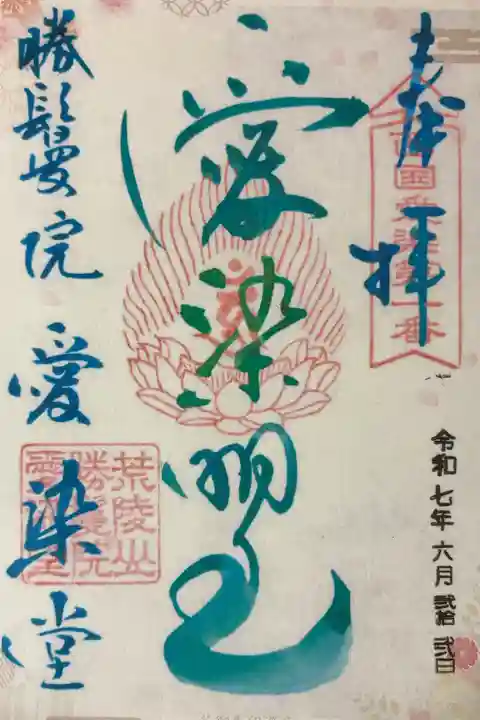 奉拝
西国愛染第一番
令和七年六月弐拾弐日
愛染明王
勝鬘院愛染堂
荒陵山
勝鬘院